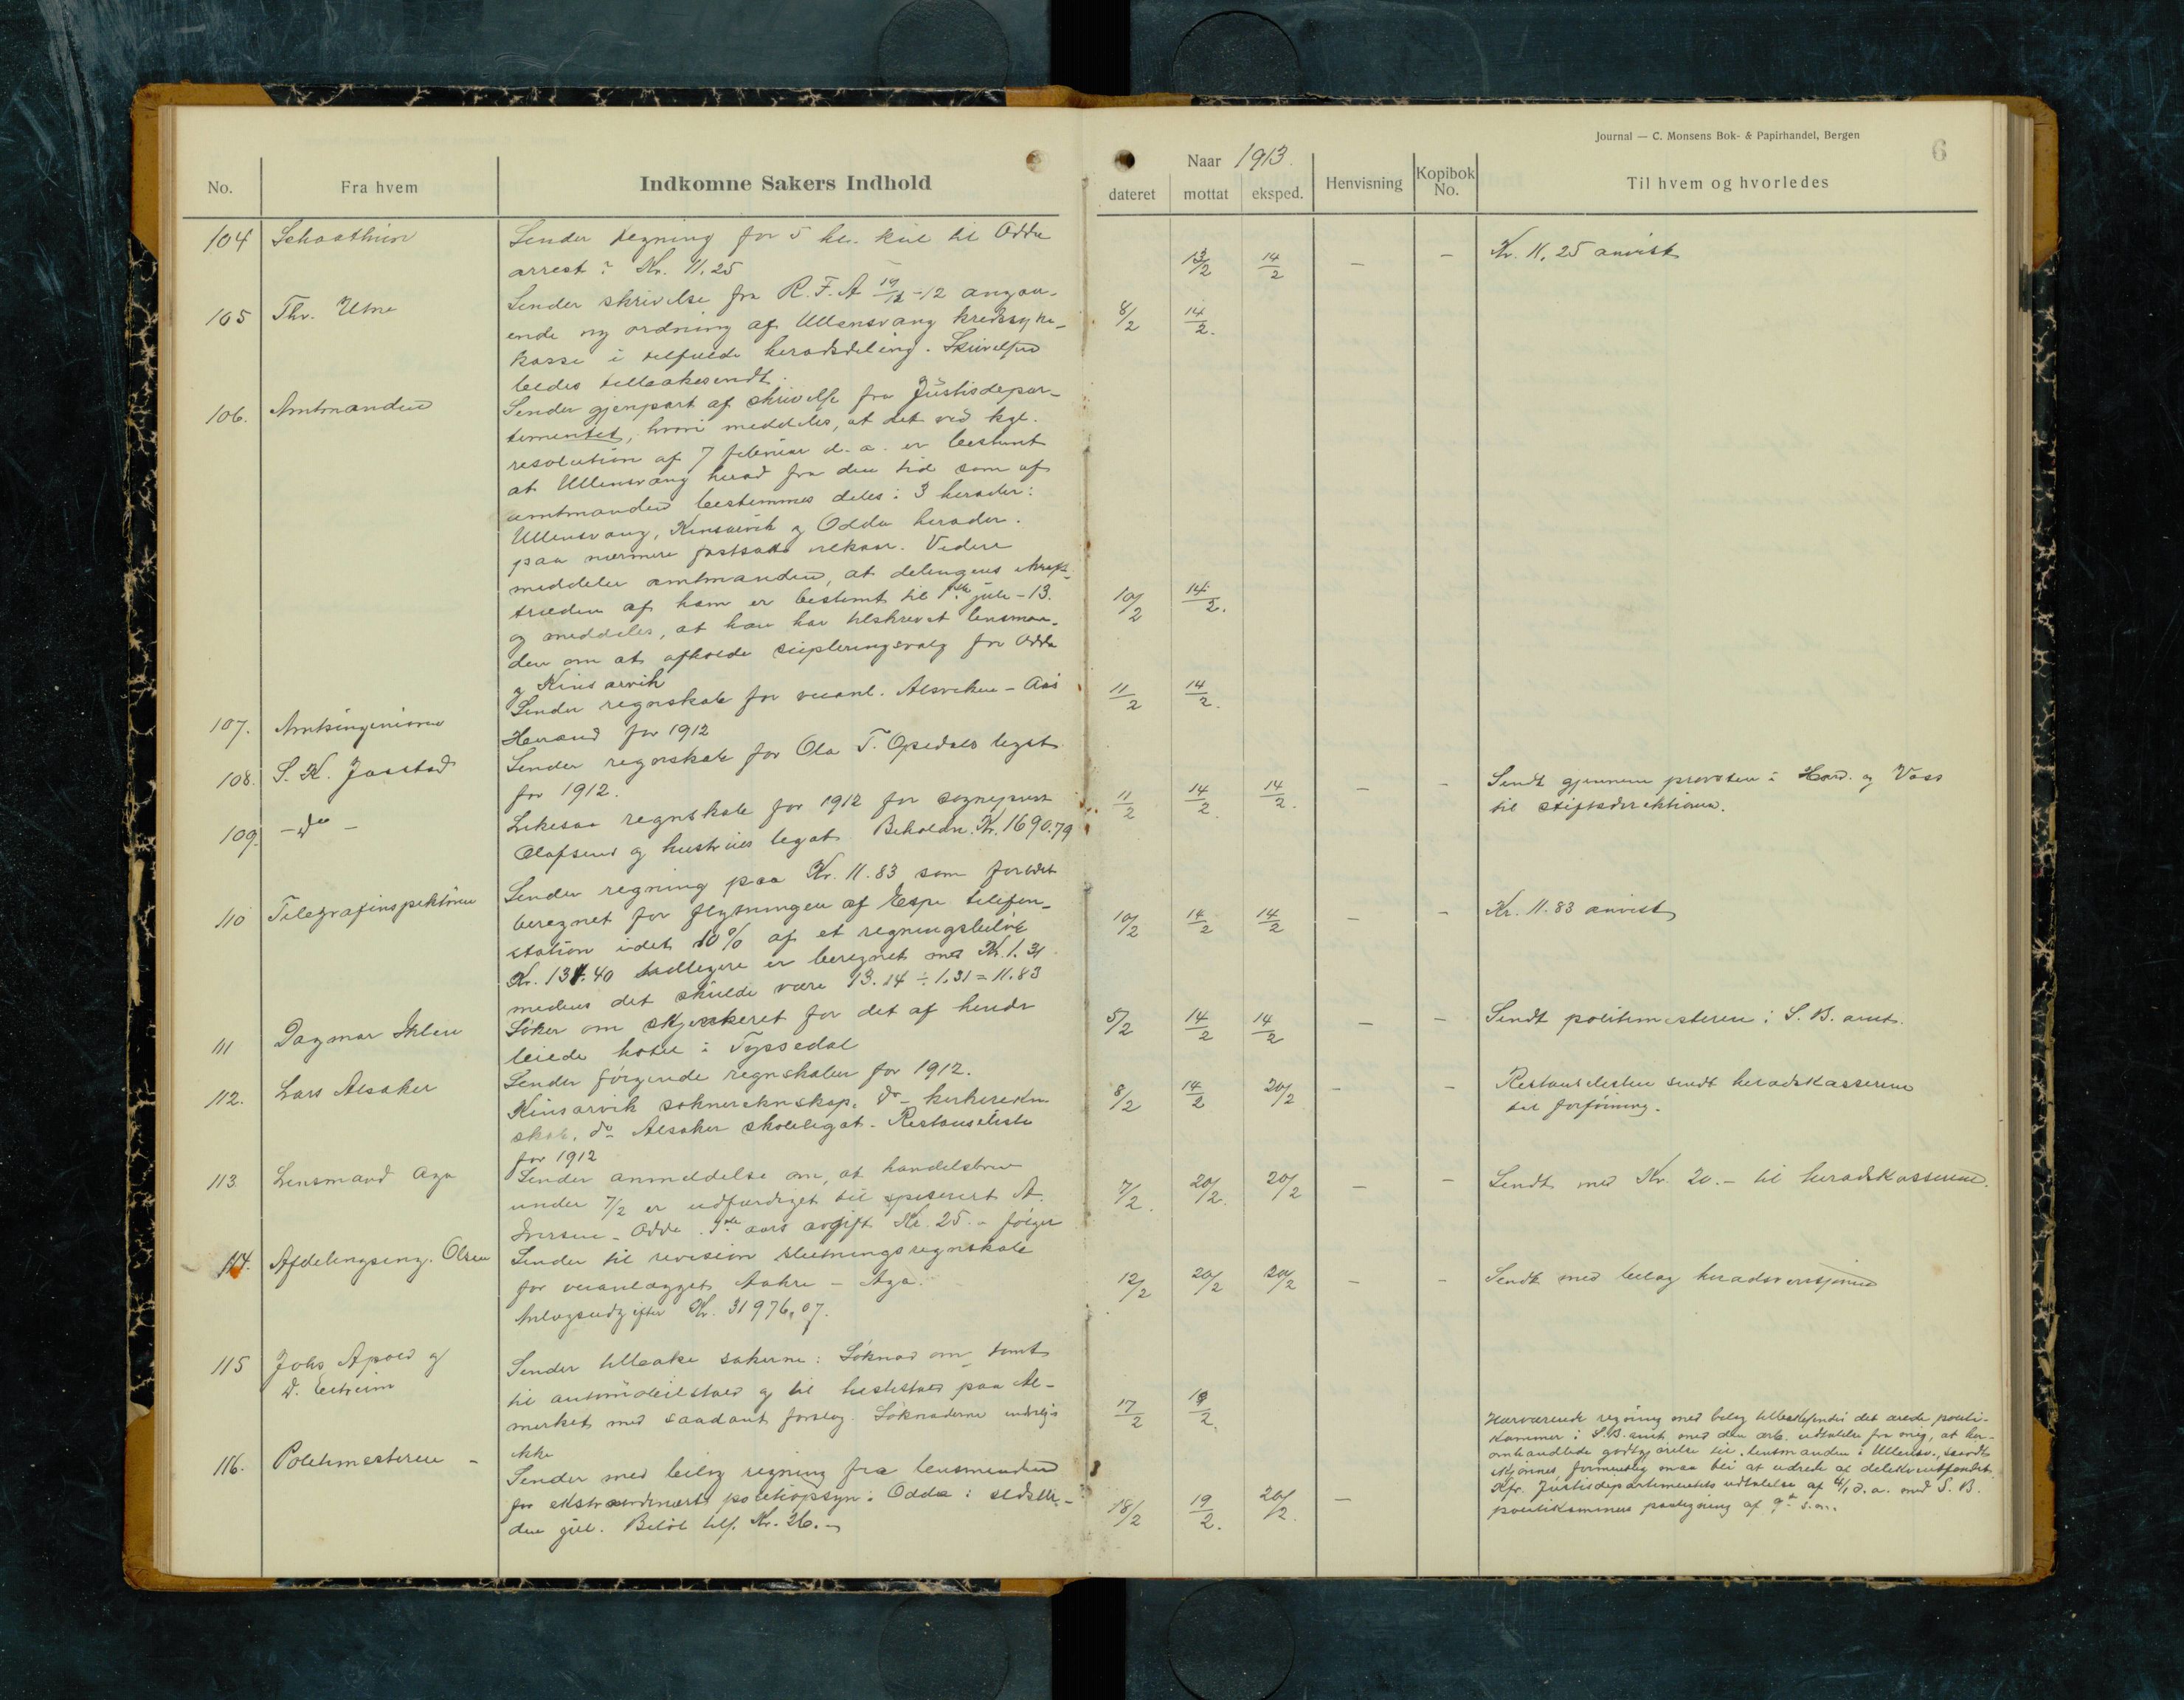 Journal — C. Monsens Bok- & Papirhandel, Bergen
6
No.
Fra hvem
Indkomne Sakers Indhold
Naar 1913.
dateret
mottat
eksped.
Henvisning
Kopibok No.
Til hvem og hvorledes
104 Schaathun
Sender regning for 5 hl. kul til Odda
arrest: Kr. 11,25
13/2 14/2 — — Kr. 11,25 anvist
105 Thv. Utne
Sender skrivelse fra R.F.A. -12 angaa-
ende ny ordning af Ullensvang kredssyke-
kasse i tilfælde heradsdeling. Skrivelsen
bedes tilbakesendt.
8/2 14/2.
106. Amtmanden
Sender gjenpart af skrivelse fra Justisdepar-
tementet, hvori meddeles, at det ved kgl.
resolution af 7 februar d.a. er bestemt
at Ullensvang herad fra den tid som af
amtmanden bestemmes deles i 3 herader:
Ullensvang, Kinsarvik og Odda herader.
paa nærmere fastsatte vilkaar. Videre
meddeler amtmanden, at delingens ikraft-
træden af ham er bestemt til 1ste juli - 13.
og meddeles, at han har tilskrevet lensman-
den om at afholde supleringsvalg for Odda
og Kinsarvik
10/2 14/2.
107. Amtsingeniøren
Sender regnskab for veianl. Alsviken - Aas
Herand for 1912
11/2 14/2.
108. S. K. Jaastad
Sender regnskab for Ola T. Opedals legat
for 1912.
11/2 14/2 14/2. — — Sendt gjennem provsten i Hard. og Voss
til stiftsdirektionen.
109. - do -
Likesaa regnskab for 1912 for sogneprest
Olafsens og hustrues legat Beholdn. Kr. 1690.79
110 Telegrafinspektøren
Sender regning paa Kr. 11.83 som forlidet
beregnet for flytningen af Espe telefon-
station idet 10% af et regningsbeløb
Kr. 131.40 tidligere er beregnet med Kr. 1.31
medens det skulde være 13.14 ÷ 1.31 = 11.83
10/2 14/2 14/2 — — Kr. 11.83 anvist
111 Dagmar
Søker om skjænkeret for det af hende
leiede hotel i Tyssedal
5/2 14/2 14/2 — — Sendt politimesteren i S.B. amt.
112. Lars Alsaker
Sender følgende regnskaber for 1912.
Kinsarvik sokneregnskap, do - kirkeregn
skab, do Alsaker skolelegat - Restanseliste
for 1912
8/2 14/2 20/2 — — Restanselisten sendt heradskasseren
til forføining.
113 Lensmand Aga
Sender anmeldelse om, at handelsbrev
under 7/2 er udfærdiget til spisevert A.
Iversen - Odda. 1ste aars avgift Kr. 25.- følger
7/2. 20/2. 20/2 — — Sendt med Kr. 20.- til heradskasseren.
114. Afdelingsing. Olsen
Sender til revision slutningsregnskab
for veianlægget Aakre - Aga.
Anlægsudgifter Kr. 31976,07.
12/2 20/2 20/2 — — Sendt med bilag heradsrevisjonen
115 Johs Apold og
D. Eitrheim
Sender tilbake sakerne: Søknad om tomt
til automobilstald og til hestestald paa Al-
merket med saadant forslag. Søknaderne indvilges
ikke
17/2 19/2
116. Politimesteren -
Sender med bilag regning fra lensmanden
for ekstraordinært politiopsyn i Odda i sidstle-
den juli. Beløb tils. Kr. 26.-
18/2 19/2. 20/2. —
Hærværende regning med bilag tilbakesendes det ærede politi-
kammer i S.B. amt med den ærb. udtalelse fra mig, at her-
omhandlede godtgjørelse til lensmanden i Ullensv.
skjønnes formentlig maa bli at udrede af delikventfondet.
Kfr. Justisdepartementets udtalelse af 4/1 d.a. med S.B.
politikammers paategning af 9de s.m.